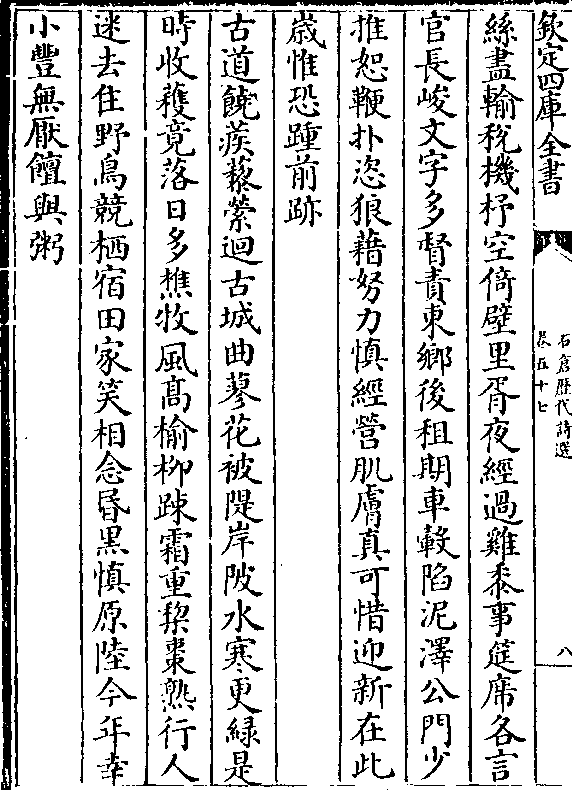 欽定四庫全書
石倉歷代詩選
卷五十七
八
絲盡輸税機杼空倚壁里胥夜經過雞黍事筵席各言
官長峻文字多督責東鄉後租期車轂陷泥澤公門少
推恕鞭扑恣狼藉努力慎經營肌膚真可惜迎新在此
歳惟恐踵前跡
古道饒蒺藜縈迴古城曲蓼花被隄岸陂水寒更緑是
時收穫竟落日多樵牧風髙榆柳踈霜重棃棗熟行人
迷去住野鳥競栖宿田家笑相念昏黒慎原陸今年幸
小豐無厭饘與粥